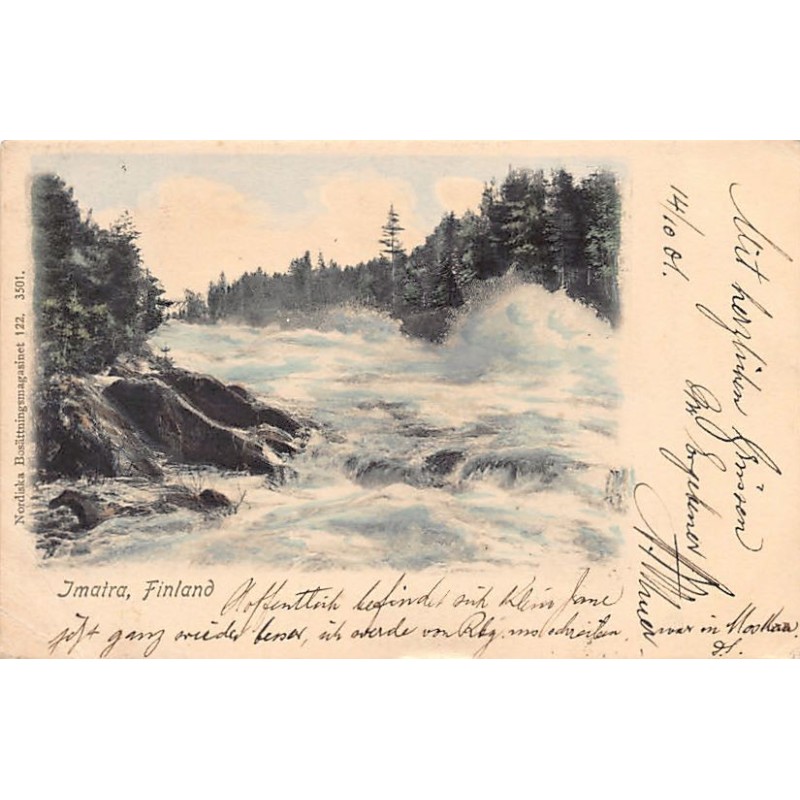 Nordiska Bosättningsmagasinet 122. 3501.
Imatra, Finland
Hoffentlich befindet sich klein Jane
jetzt ganz wieder besser, ich werde von Rbg. uns schreiben. war in Moskau
d. J.
14/10 01.
Mit herzlichen Grüssen
Ihr Ergebener